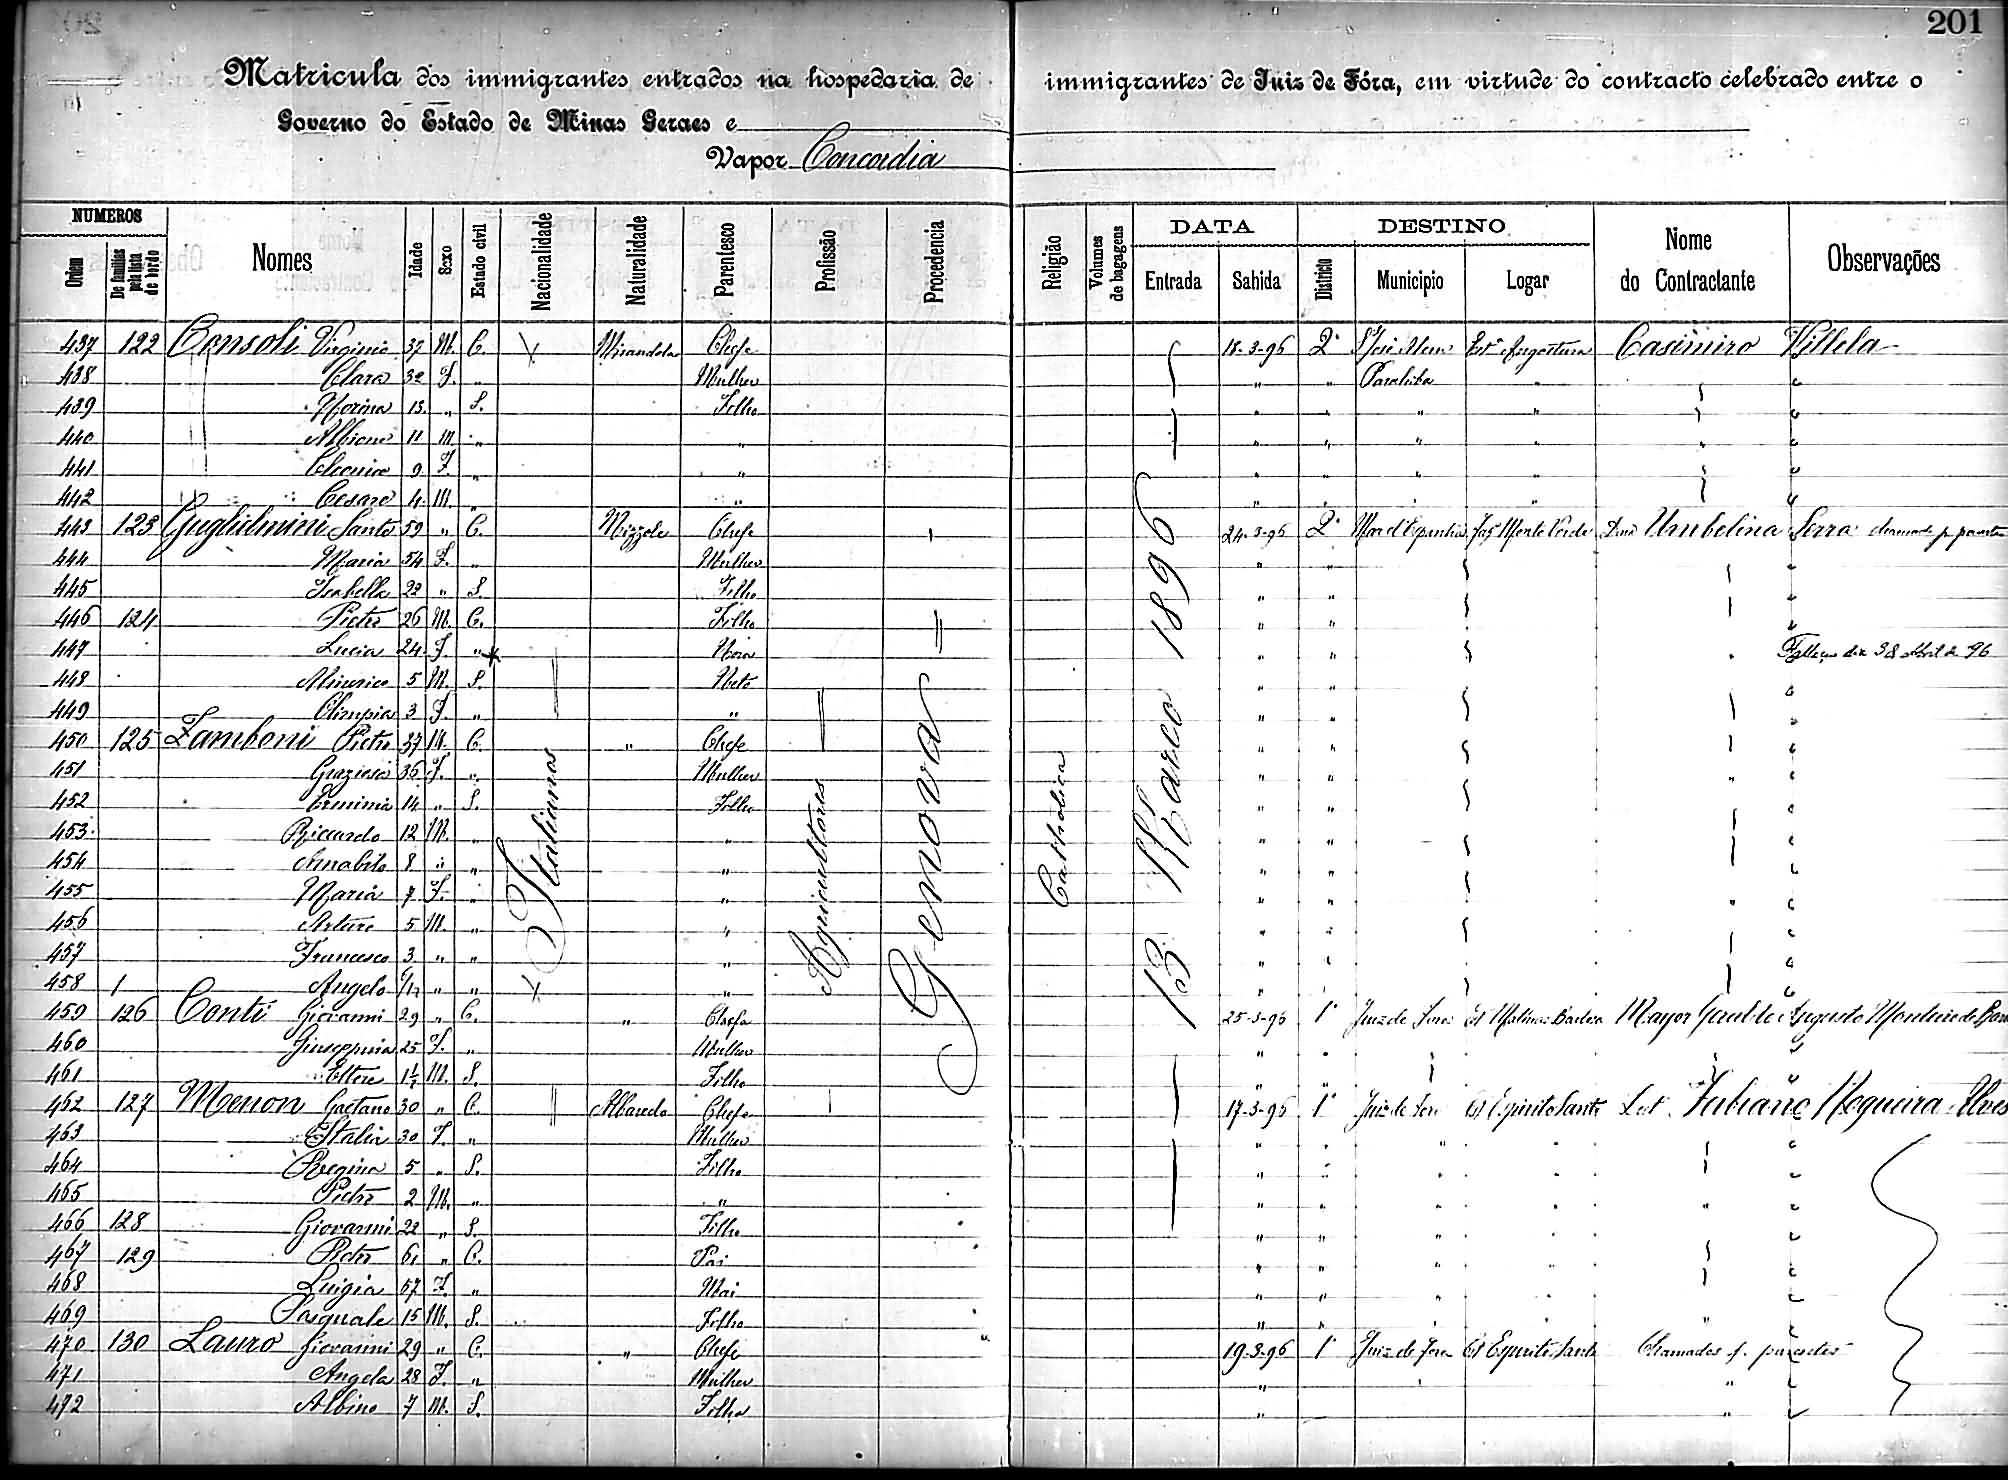 201
Matricula dos immigrantes entrados na hospedaria de immigrantes de Juiz de Fóra, em virtude do contracto celebrado entre o
Governo do Estado de Minas Geraes e
Vapor Concordia
NUMEROS DATA DESTINO
Ordem De familias pela lista de bordo Nomes Idade Sexo Estado civil Nacionalidade Naturalidade Parentesco Profissão Procedencia Religião Volumes de bagagens Entrada Sahida Districto Municipio Logar Nome do Contractante Observações
Italianos Agricultores Genova Catholica 13 Março 1896
437 122 Consoli Virginio 37 M. C. Mirandola Chefe 18-3-96 2º S José Alem Estº Angostura Casimiro Villela
438 Clara 32 F. " Mulher " " Parahiba "
439 Norina 13 " S. Filho " " " "
440 Albiono 11 M. " " " " " "
441 Cleonice 9 F. " " " " " "
442 Cesare 4 M. " " " " " "
443 123 Guglielmini Santo 59 " C. Mizzole Chefe 24-3-96 2º Mar d'Espanha Fazª Monte Verde Dona Umbelina Serra chamado p parentes
444 Maria 54 F. " Mulher " "
445 Isabella 22 " S. Filho " "
446 124 Pietro 26 M. C. Filho " "
447 Lucia 24 F. " Nora " " Falleceu dia 28 Abril de 96
448 Almerico 5 M. S. Neto " "
449 Olimpia 3 F. " " " "
450 125 Zamboni Pietro 37 M. C. " Chefe " "
451 Graziosa 36 F. " Mulher " "
452 Erminia 14 " S. Filho " "
453 Riccardo 12 M. " " " "
454 Amabile 8 " " " " "
455 Maria 7 F. " " " "
456 Arturo 5 M. " " " "
457 Francesco 3 " " " " "
458 Angelo " " " "
459 126 Conti Giovanni 29 " C. " Chefe 25-3-96 1º Juiz de Fora Est Mathias Barbosa Mayor Augusto Monteiro de
460 Giuseppina 25 F. " Mulher " "
461 Ettore M. S. Filho " "
462 127 Menon Gaetano 30 " C. Albaredo Chefe 17-3-96 1º Juiz de Fora Est Espirito Santo Fabiano Nogueira Alves
463 Italia 30 F. " Mulher " " " "
464 Regina 5 " S. Filho " " " "
465 Pietro 2 M. " " " " " "
466 128 Giovanni 22 " S. Filho " " " "
467 129 Pietro 61 " C. Pai " " " "
468 Luigia 57 F. " Mai " " " "
469 Pasquale 15 M. S. Filho " " " "
470 130 Lauro Giovanni 29 " C. " Chefe " 19-3-96 1º Juiz de Fora Est Espirito Santo Chamados p. parentes
471 Angela 28 F. " Mulher " "
472 Albino 7 M. S. Filho " "